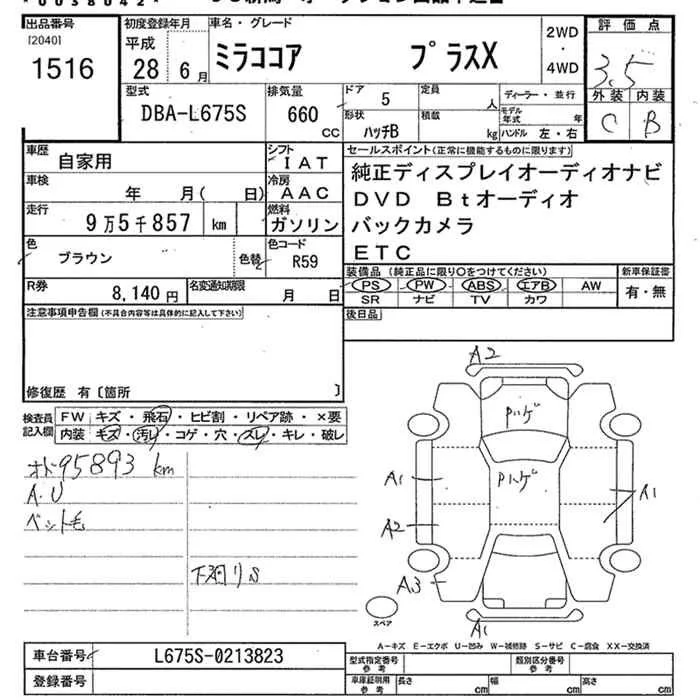 *0038042*
出品番号
[2040]
1516
初度登録年月
平成
28 6月
車名・グレード
ミラココア プラスX
2WD
・
4WD
評価点
3.5
外装 内装
C B
型式
DBA-L675S
排気量
660
cc
ドア
5
定員
人
形状
ハッチB
積載
kg
ディーラー・並行
モデル年式 年
ハンドル 左・右
車歴
自家用
シフト
IAT
車検
年 月(日)
冷房
AAC
走行
9万5千857 km
燃料
ガソリン
色
ブラウン
色替
色コード
R59
R券
8,140円
名変通知期限
月 日
セールスポイント(正常に機能するものに限ります)
純正ディスプレイオーディオナビ
DVD Btオーディオ
バックカメラ
ETC
装備品(純正品に限り○をつけてください)
PS PW ABS エアB AW
SR ナビ TV カワ
新車保証書
有・無
後日品
注意事項申告欄(不具合内容等は具体的に記入して下さい)
修復歴 有〔箇所 〕
検査員
記入欄
FW キズ・飛石・ヒビ割・リペア跡・×要
内装 キズ・汚レ・コゲ・穴・スレ・キレ・破レ
オド95893 km
A.U
ペット毛
下廻りS
A2
Pハゲ
Pハゲ
A1
A1
A2
A3
A1
スペア
A-キズ E-エクボ U-凹み W-補修跡 S-サビ C-腐食 XX-交換済
車台番号
L675S-0213823
登録番号
型式指定番号
参考
類別区分番号
参考
車庫証明用
参考
長さ cm
幅 cm
高さ cm